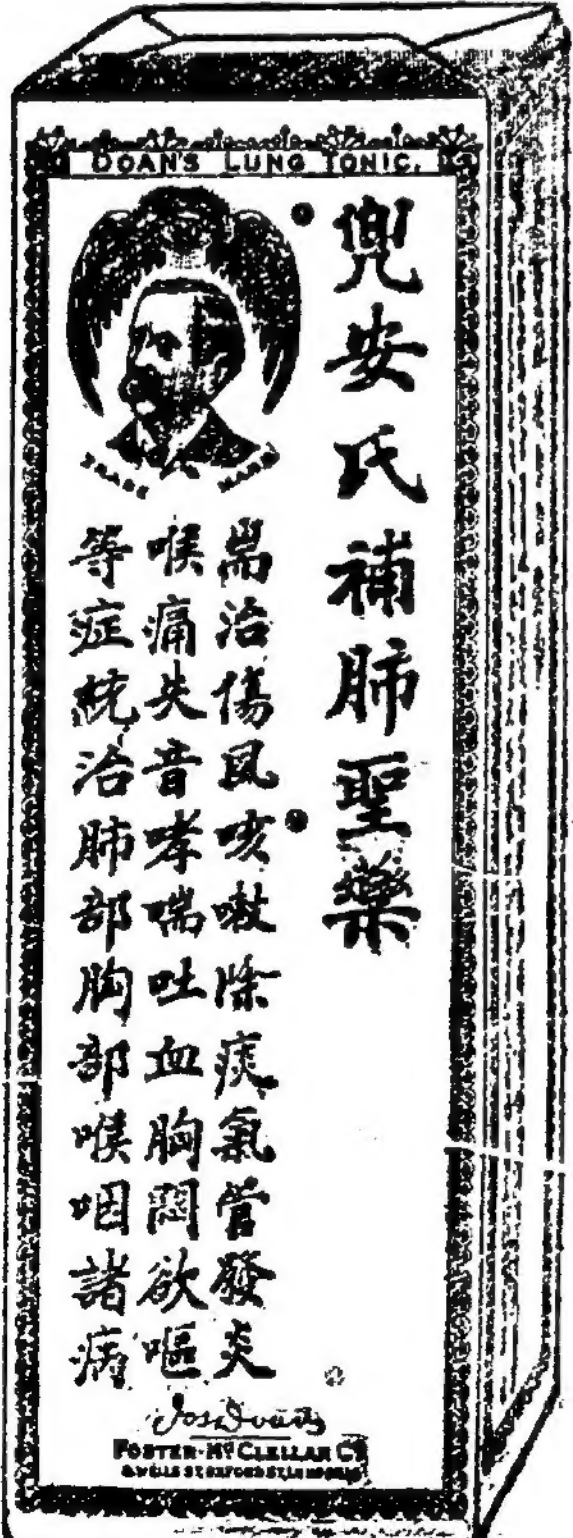 DOAN'S LUNG TONIC.
TRADE MARK
兜安氏補肺聖藥
耑治傷風咳嗽除痰氣管發炎
喉痛失音哮喘吐血胸悶欲嘔
等症統治肺部胸部喉咽諸病
FOSTER-McCLELLAN Co